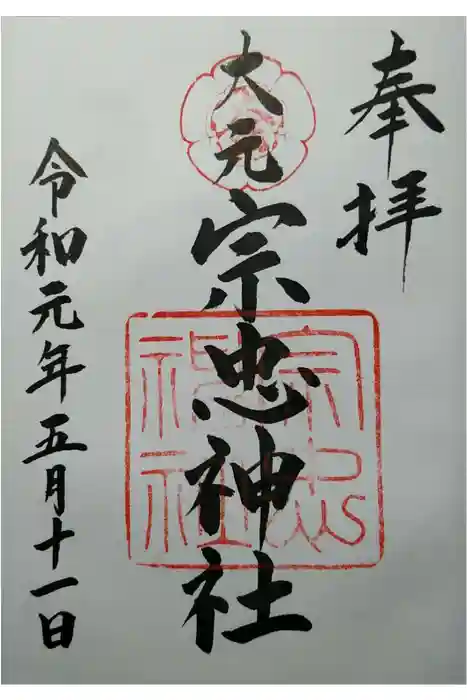 奉拝
大元
宗忠神社
令和元年五月十一日
宗忠
神社